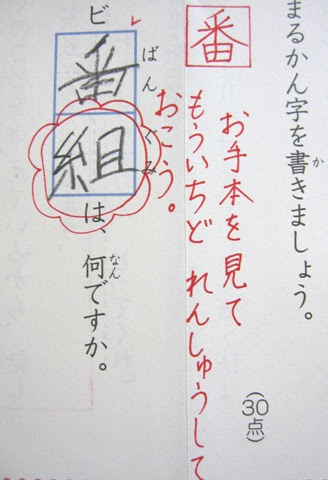 まるかん字を書きましょう。
か
(30点)
番
お手本を見て
もういちど れんしゅうして
おこう。
ビ番組は、何ですか。
ばんぐみ
なん